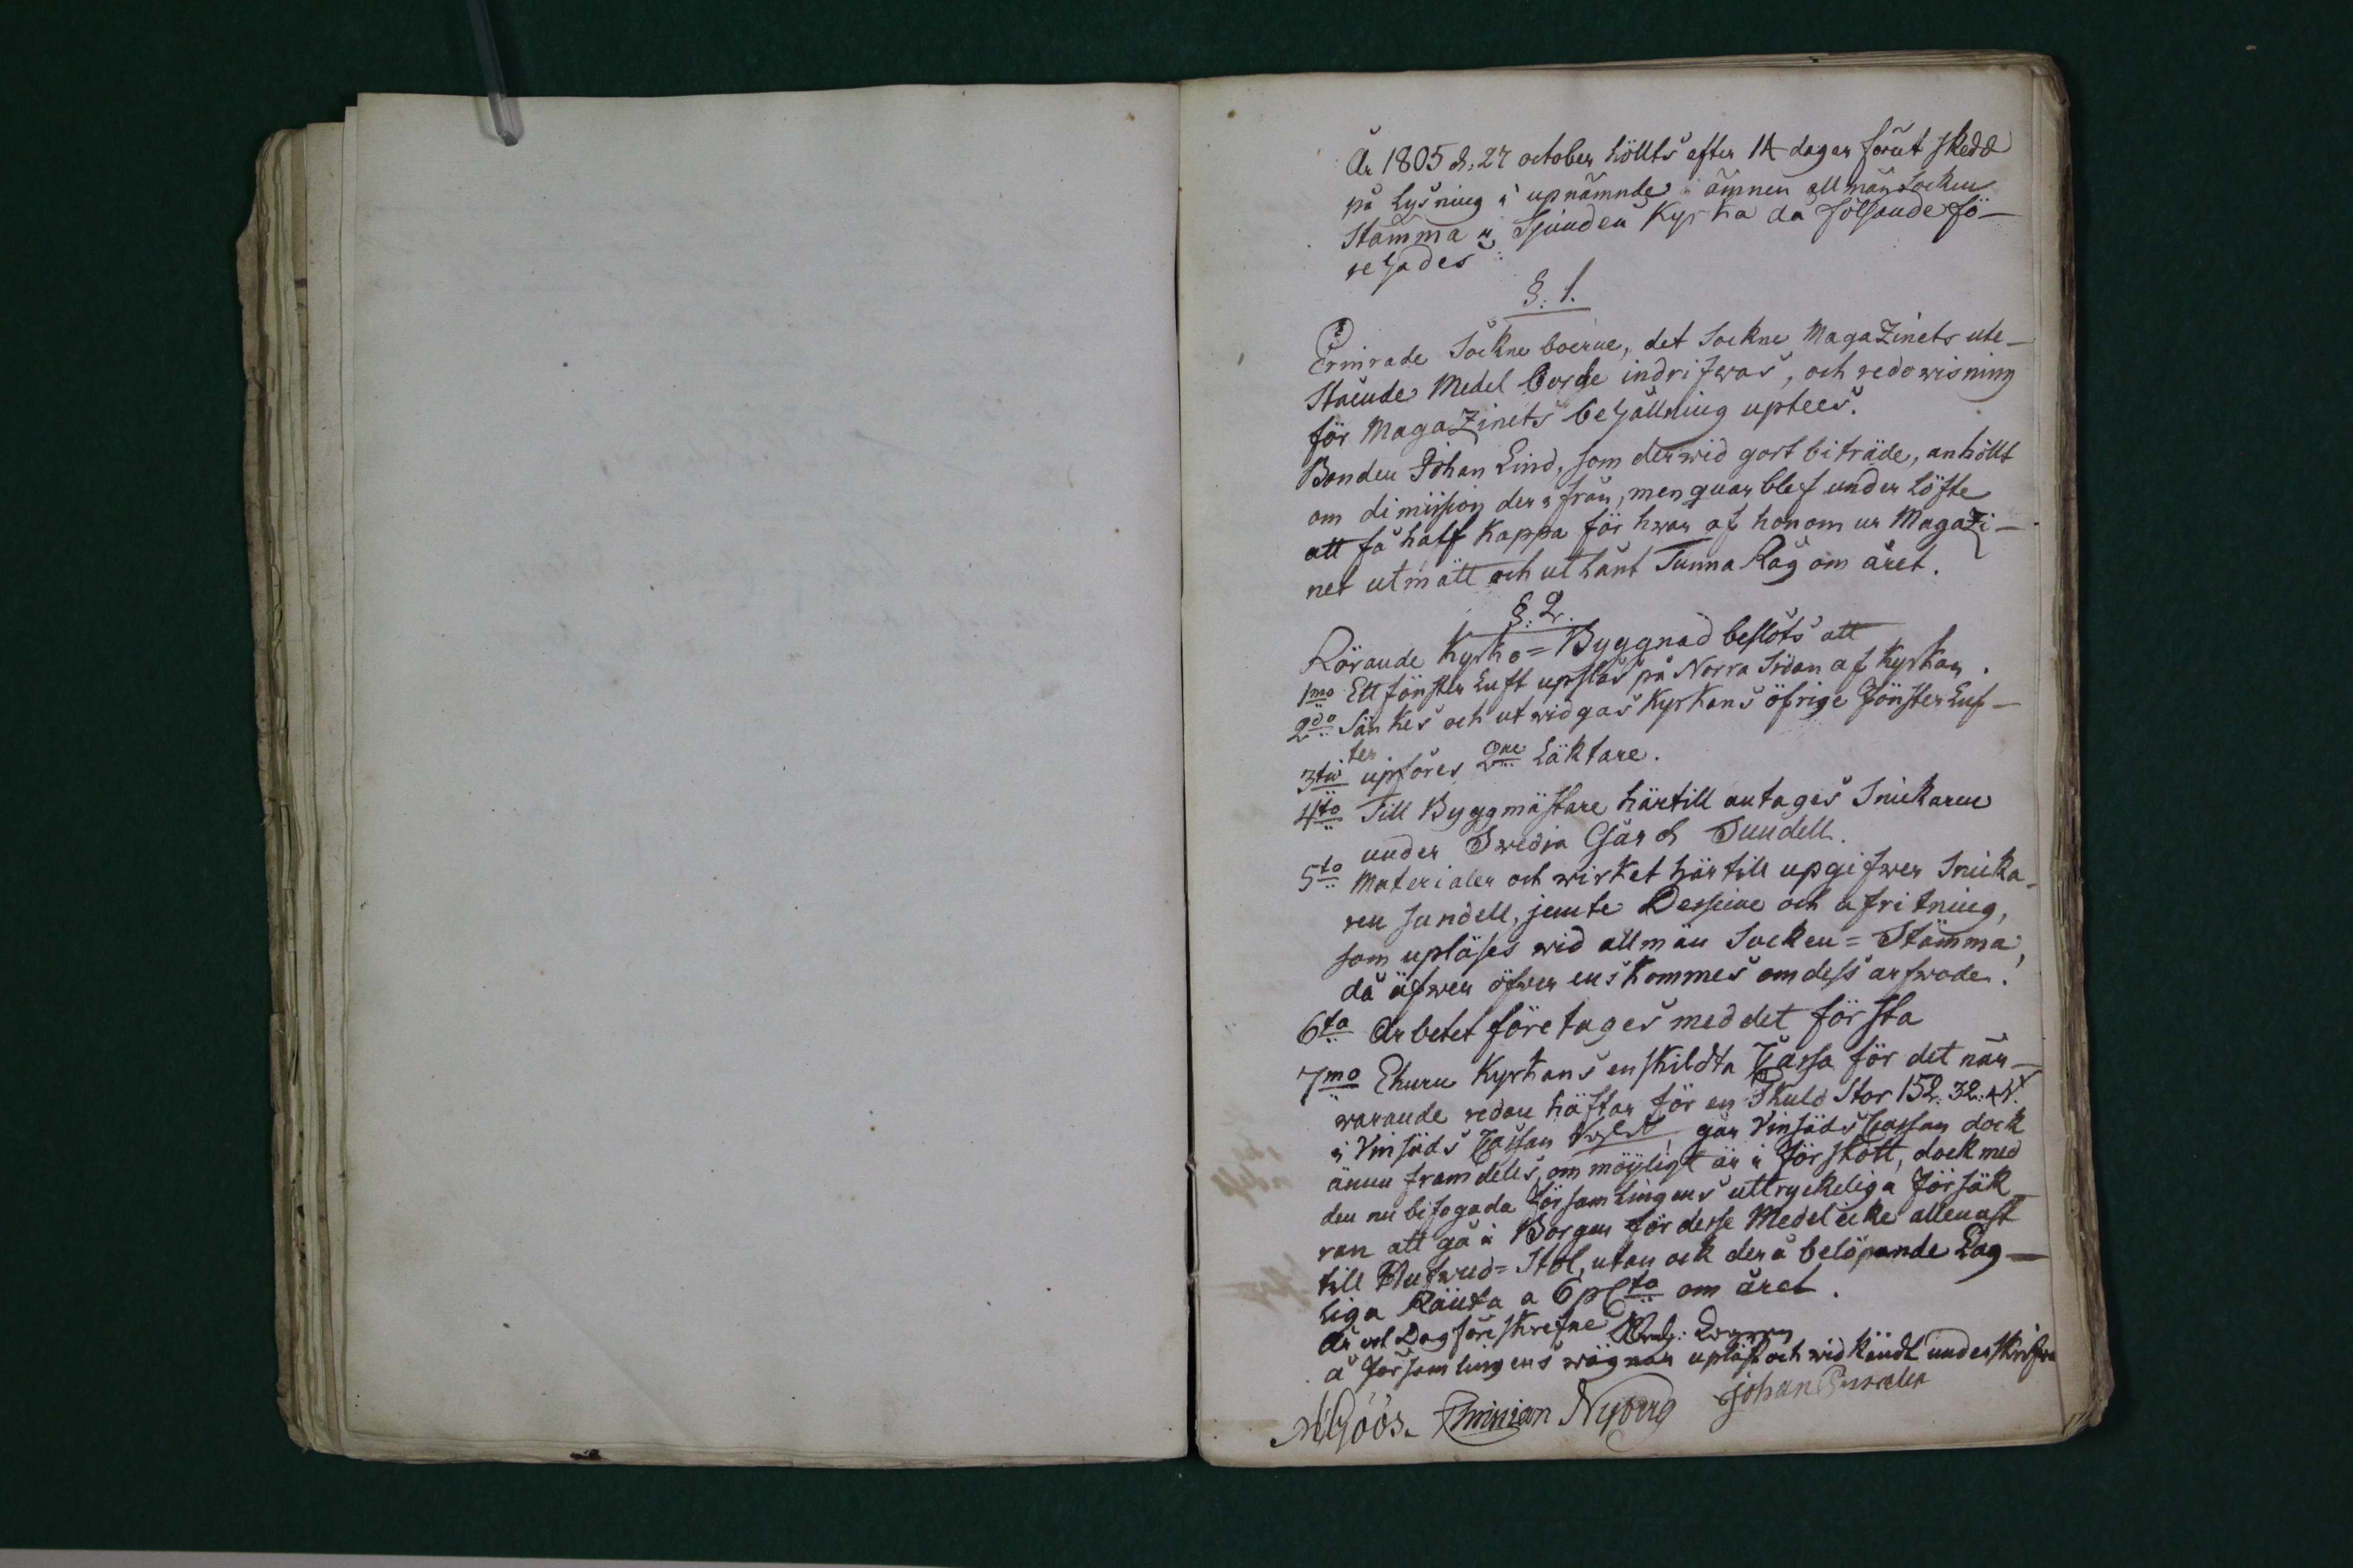 År 1805 d. 27 october höllts efter 14 dagar förut skedd
på Lysning i upnämnde ämnen allmän Socken
Stämma i Sjundeå Kyrka då följande fö-
rehades:
§. 1.
Ermrade Sockne boerne, det Sockne MagaZinets ute-
stående Medel borde indrifwas, och redowisning
för MagaZinets behållning uptees.
Bonden Johan Lind, som derwid gort biträde, anhöllt
om dimission der ifrån, men quarblef under Löfte
att få half Kappa för hwar af honom ur MagaZi-
net utmätt och utlänt Tunna Råg om året.
§. 2.
Rörande Kyrko=Byggnad beslöts att
1mo Ett fönster Luft upslås på Norra Sidan af Kyrkan.
2do Sänkes och utwidgas Kyrkans öfrige Fönster Luf-
ter
3tio upföres 2ne Läktare.
4to Till Byggmästare härtill antages Snickaren
under Swidja Gård Sundell.
5to Materialer och wirket härtill upgifwer Snicka-
ren Sundell, jemte Desseine och afritning,
som upläses wid allmän Socken=Stämma,
då äfwen öfwer ens kommes om dess arfwode.
6to Arbetet företages med det första
7mo Ehuru Kyrkans enskildta Cassa för det när-
warande redan häftar för en Skuld Stor 152. 32.
i Vinsäds Cassan går Vinsäds Cassan dock
ännu framdeles, om möyligt är i förskott, dock med
den nu bifogada Församlingens uttryckeliga Försäk
ran att gå i Borgen för desse Medel icke allenast
till Hufwud=Stol, utan ock derå belöpande Lag-
liga Ränta a 6 pCto om året.
År och Dag föreskrefne
å Församlingens wägnar upläst och widkändt underskrifwa
Göös. Christian Nyberg Johan